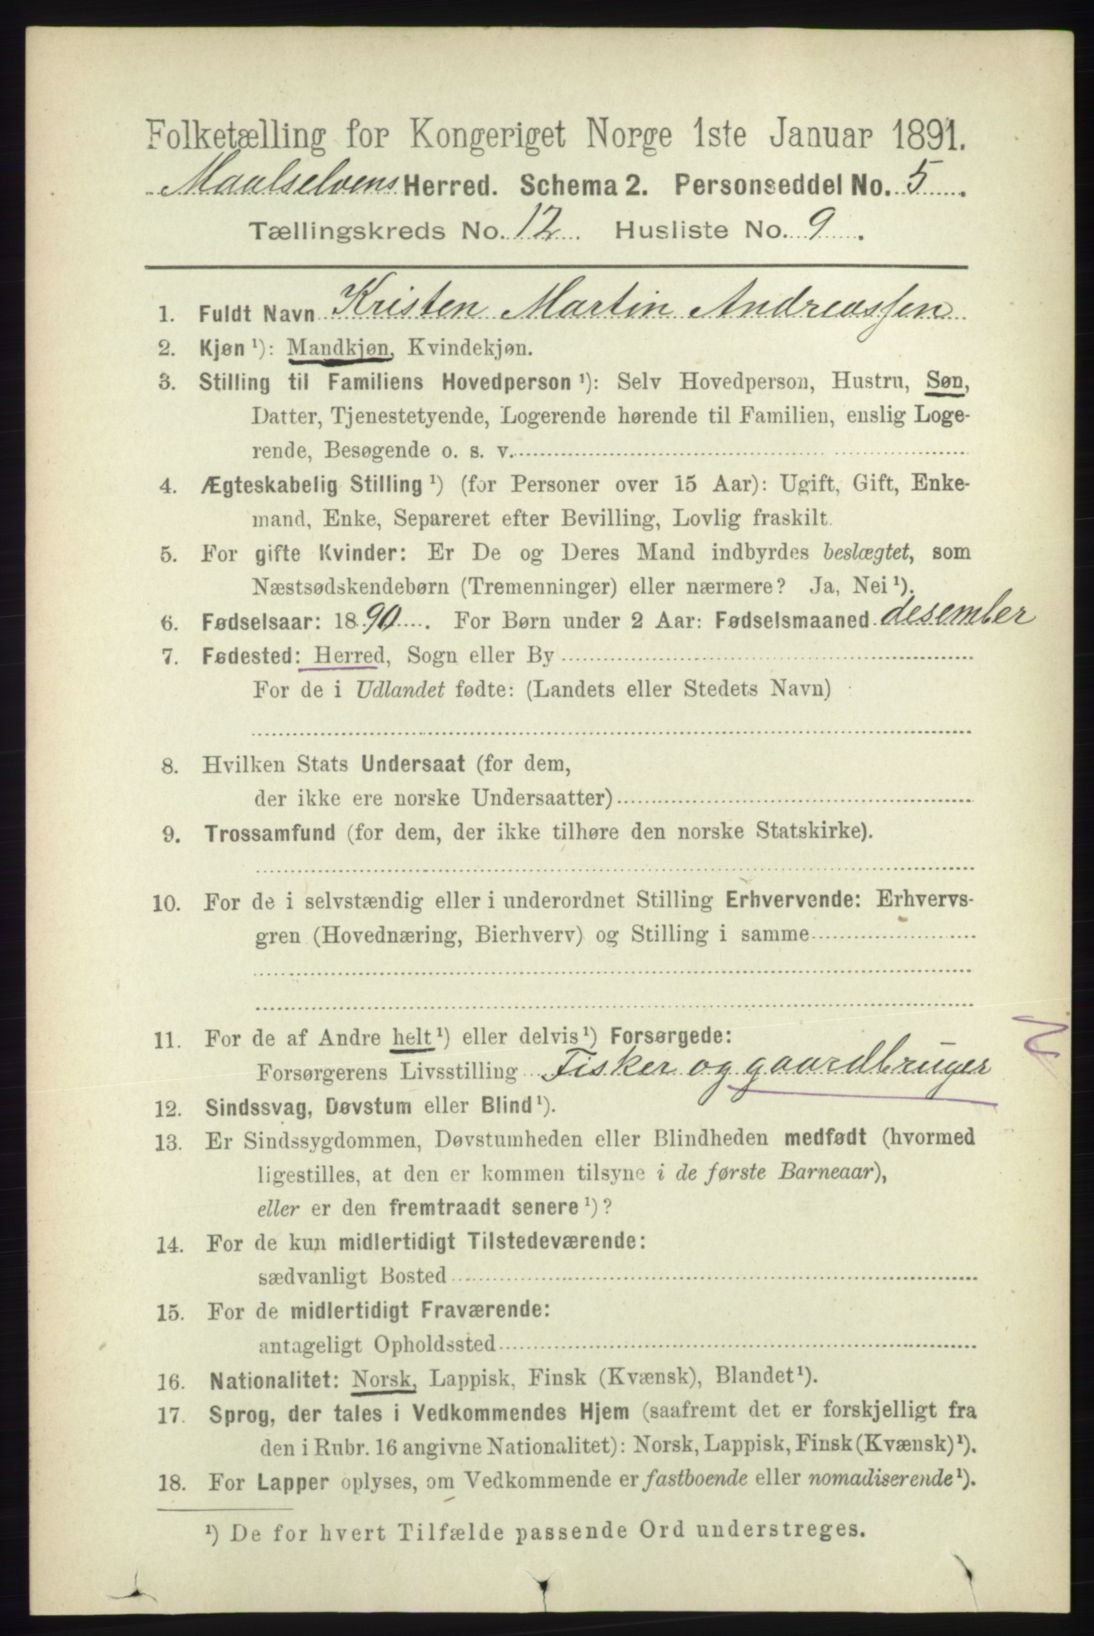 Folketælling for Kongeriget Norge 1ste Januar 1891.
Maalselvens Herred. Schema 2. Personseddel No. 5.
Tællingskreds No. 12. Husliste No. 9.
1. Fuldt Navn Kristen Martin Andreassen
2. Kjøn ¹): Mandkjøn, Kvindekjøn.
3. Stilling til Familiens Hovedperson ¹): Selv Hovedperson, Hustru, Søn,
Datter, Tjenestetyende, Logerende hørende til Familien, enslig Loge-
rende, Besøgende o. s. v.
4. Ægteskabelig Stilling ¹) (for Personer over 15 Aar): Ugift, Gift, Enke-
mand, Enke, Separeret efter Bevilling, Lovlig fraskilt.
5. For gifte Kvinder: Er De og Deres Mand indbyrdes beslægtet, som
Næstsødskendebørn (Tremenninger) eller nærmere? Ja, Nei ¹).
6. Fødselsaar: 1890. For Børn under 2 Aar: Fødselsmaaned desember
7. Fødested: Herred, Sogn eller By
For de i Udlandet fødte: (Landets eller Stedets Navn)
8. Hvilken Stats Undersaat (for dem,
der ikke ere norske Undersaatter)
9. Trossamfund (for dem, der ikke tilhøre den norske Statskirke).
10. For de i selvstændig eller i underordnet Stilling Erhvervende: Erhvervs-
gren (Hovednæring, Bierhverv) og Stilling i samme
11. For de af Andre helt ¹) eller delvis ¹) Forsørgede:
Forsørgerens Livsstilling Fisker og gaardbruger
12. Sindssvag, Døvstum eller Blind ¹).
13. Er Sindssygdommen, Døvstumheden eller Blindheden medfødt (hvormed
ligestilles, at den er kommen tilsyne i de første Barneaar),
eller er den fremtraadt senere ¹)?
14. For de kun midlertidigt Tilstedeværende:
sædvanligt Bosted
15. For de midlertidigt Fraværende:
antageligt Opholdssted
16. Nationalitet: Norsk, Lappisk, Finsk (Kvænsk), Blandet ¹).
17. Sprog, der tales i Vedkommendes Hjem (saafremt det er forskjelligt fra
den i Rubr. 16 angivne Nationalitet): Norsk, Lappisk, Finsk (Kvænsk) ¹).
18. For Lapper oplyses, om Vedkommende er fastboende eller nomadiserende ¹).
¹) De for hvert Tilfælde passende Ord understreges.